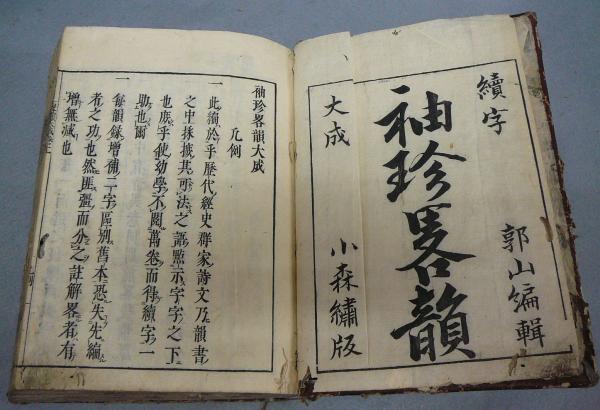 續字 郭山編輯
袖珍畧韻
大成 小森繡版
袖珍畧韻大成
凡例
一 此續於乎歴代經史群家詩文乃韻書
之中採摭其可法之語點示字字之下
也庶乎使幼學不閱萬卷而得續字一
助也爾
一 每韻錄增補二字區別舊本恐失先編
者之功也然匪彊而分之註解畧者有
增無減也